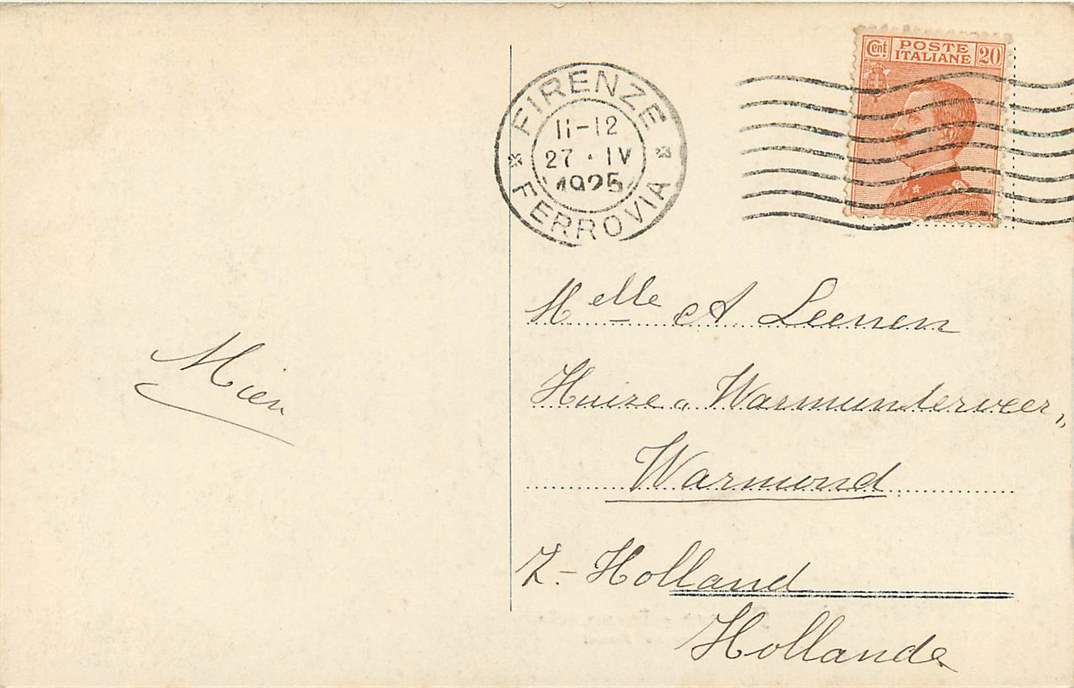 Cent POSTE ITALIANE 20
FIRENZE
11-12
27 · IV
1925
FERROVIA
Mien
Melle A Leenen
Huize „Warmunderweer„
Warmond
Z-Holland
Hollande